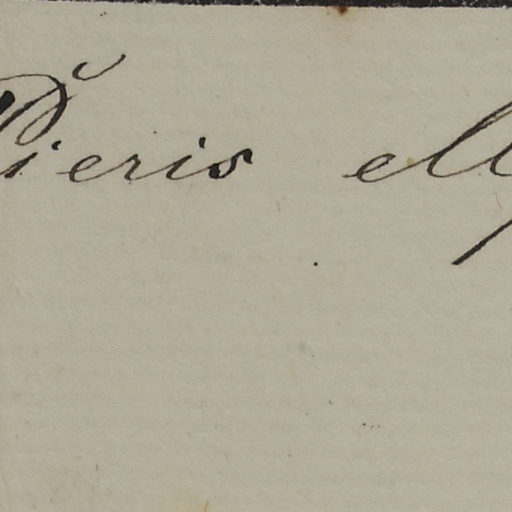 Pieris ell